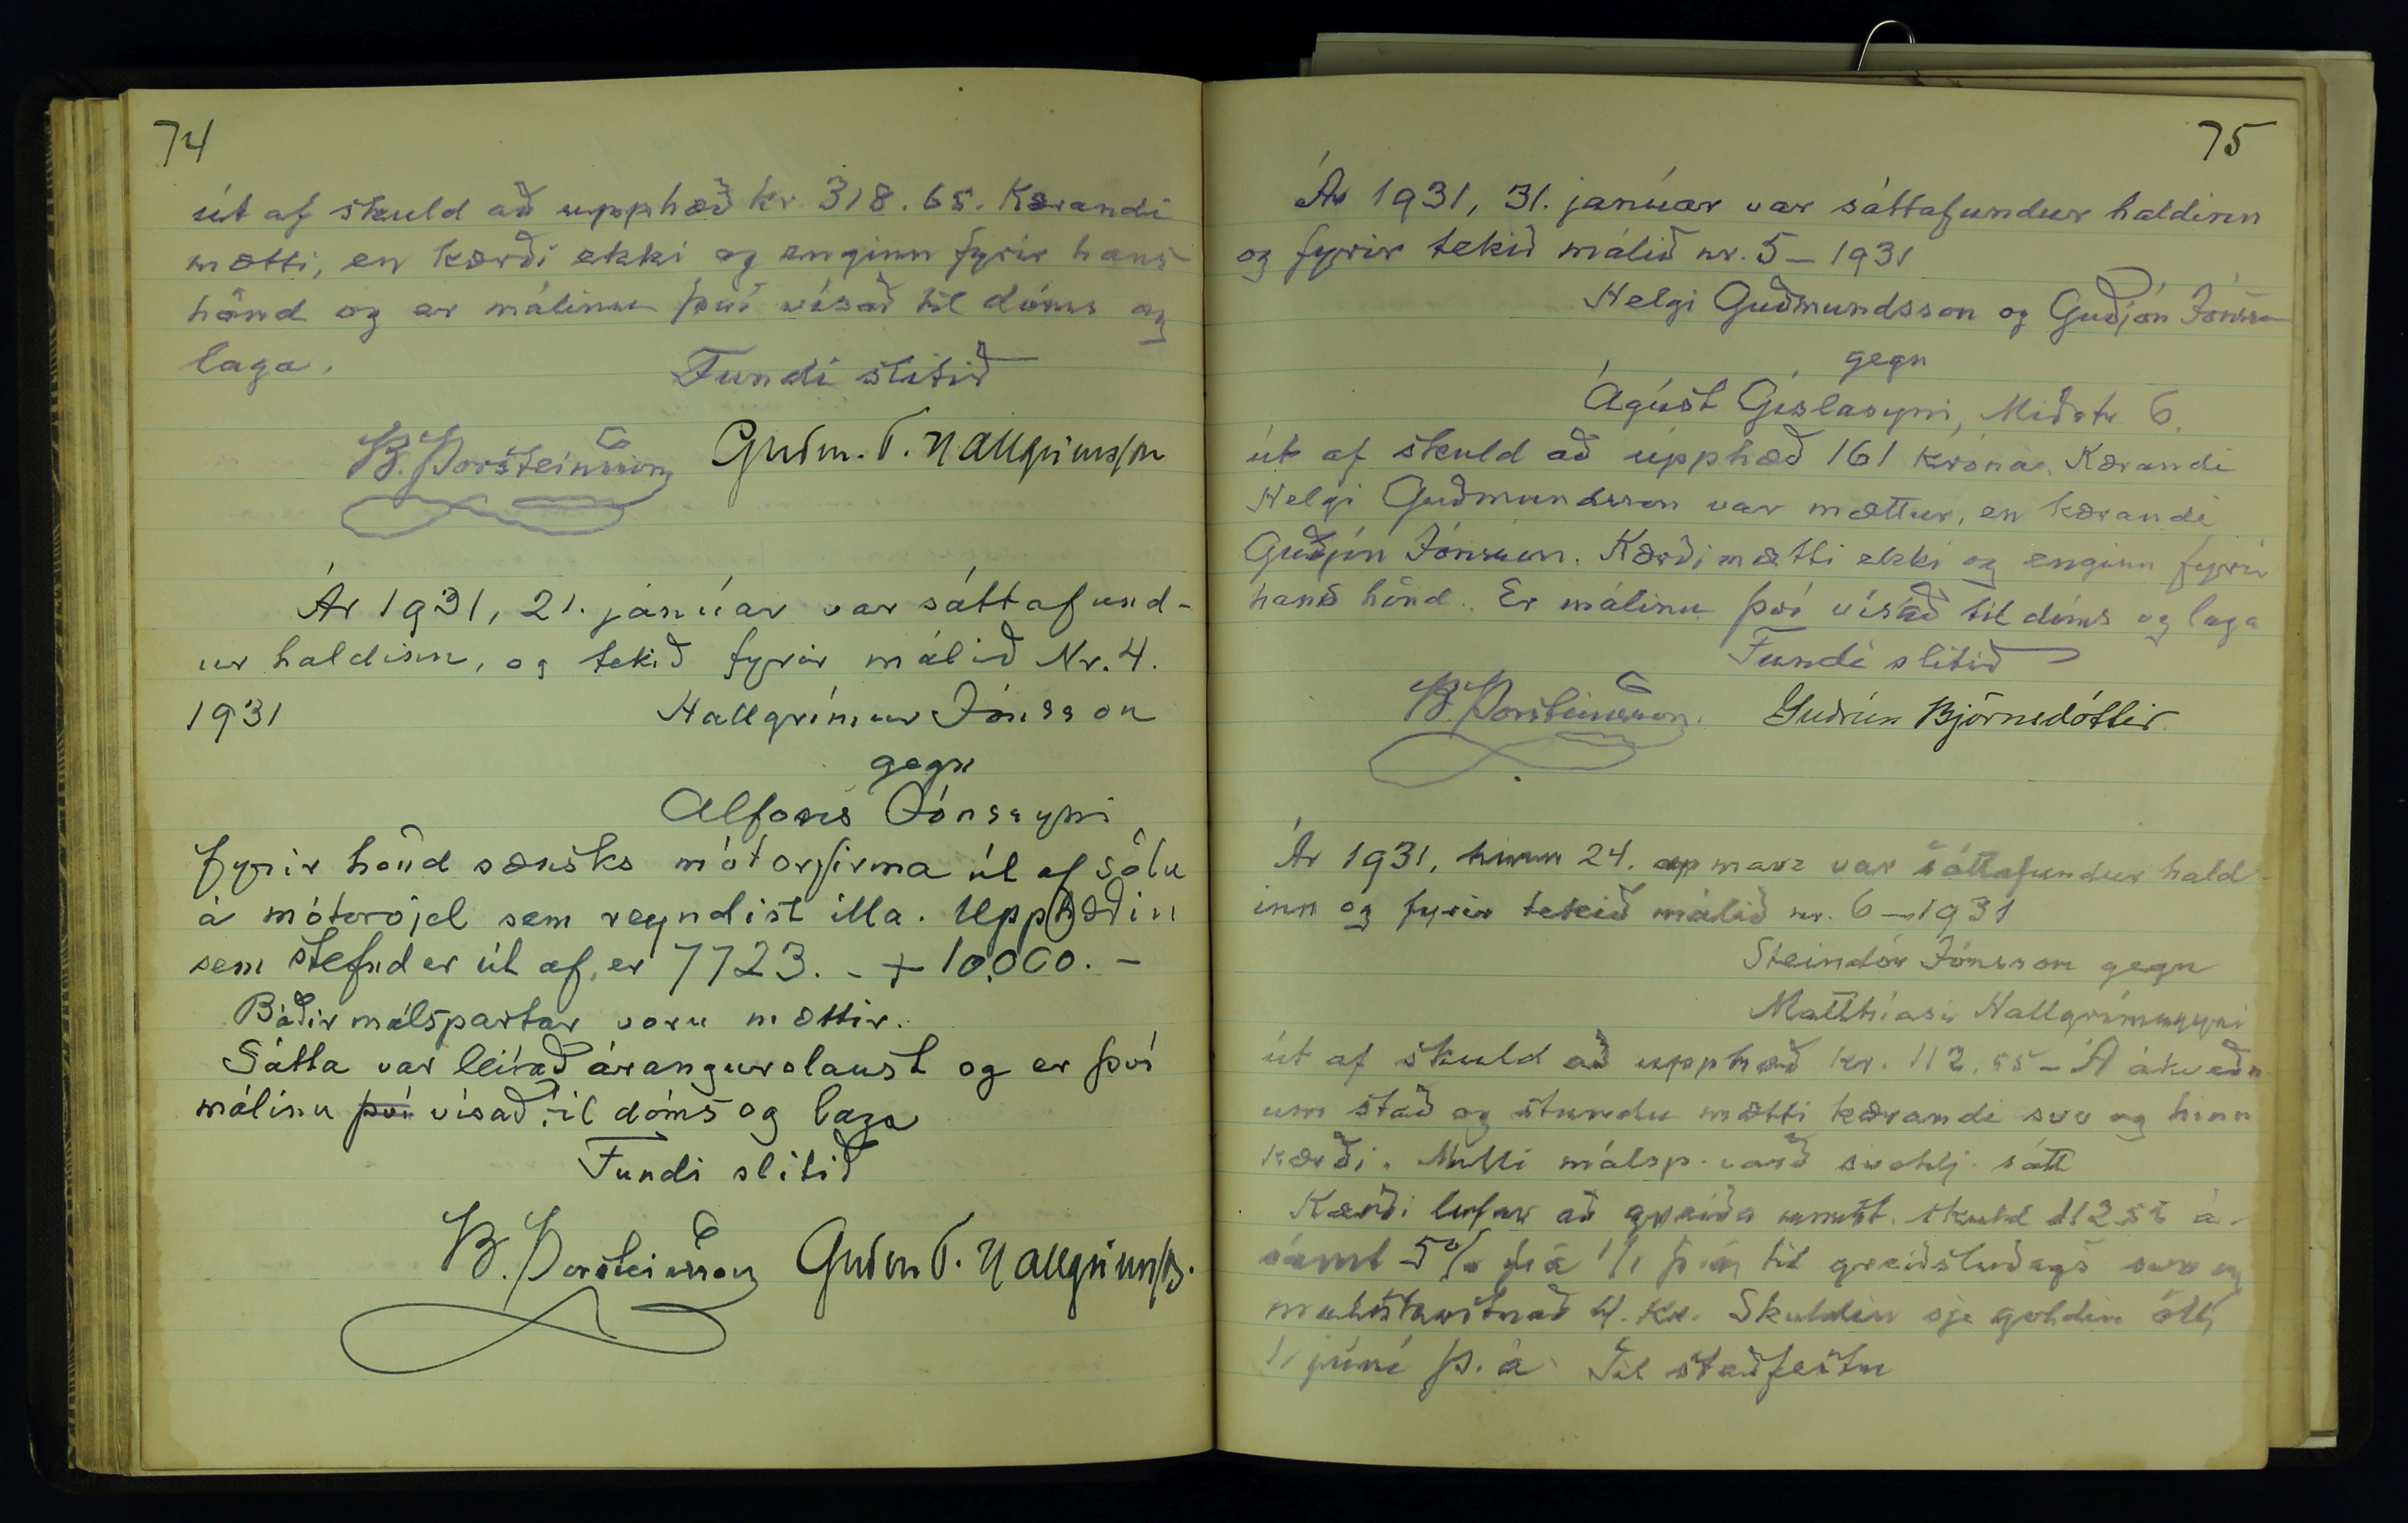 74
út af skuld að upphæð kr. 318.65. Kærandi
mætti, en kærði ekki og enginn fyrir hans
hönd og er málinu því vísað til dóms og
laga.
Fundi slitið
B. Þorsteinsson Guðm. T. Hallgrímsson
Ár 1931, 21. janúar var sáttafund-
ur haldinn, og tekið fyrir málið Nr. 4.
1931 Hallgrímur Jónsson
gegn
Alfons Jónssyni
fyrir hönd sænsks mótorfirma út af sölu
á mótorvjel sem reyndist illa. Upphæðin
sem stefnd er út af, er 7723. - + 10.000. -
Báðir málspartar voru mættir.
Sátta var leitað árangurslaust og er því
málinu því vísað til dóms og laga
Fundi slitið
B. Þorsteinsson Guðm T. Hallgrímss.
75
Ár 1931, 31. janúar var sáttafundur haldinn
og fyrir tekið málið nr. 5 - 1931
Helgi Guðmundsson og Guðjón Jónsson
gegn
Ágúst Gíslasyni, Miðstr 6.
út af skuld að upphæð 161 króna. Kærandi
Helgi Guðmundsson var mættur, en kærandi
Guðjón Jónsson. Kærði mætti ekki og enginn fyrir
hans hönd. Er málinu því vísað til dóms og laga
Fundi slitið
B. Þorsteinsson. Guðrún Björnsdóttir.
Ár 1931, hinn 24. ap marz var sáttafundur hald-
inn og fyrir tekið málið nr. 6 - 1931
Steindór Jónsson gegn
Matthíasi Hallgrímssyni
út af skuld að upphæð kr. 112,55 - Á ákveðn
um stað og stundu mætti kærandi svo og hinn
kærði. Milli málsp. varð svohlj. sátt
Kærði lofar að greiða skuld 112.55 á-
samt 5% frá 1/1 þ.á. til greiðsludags svo og
málskostnað 4. kr. Skuldin sje goldin öll
1. júní þ. á. Til staðfestu